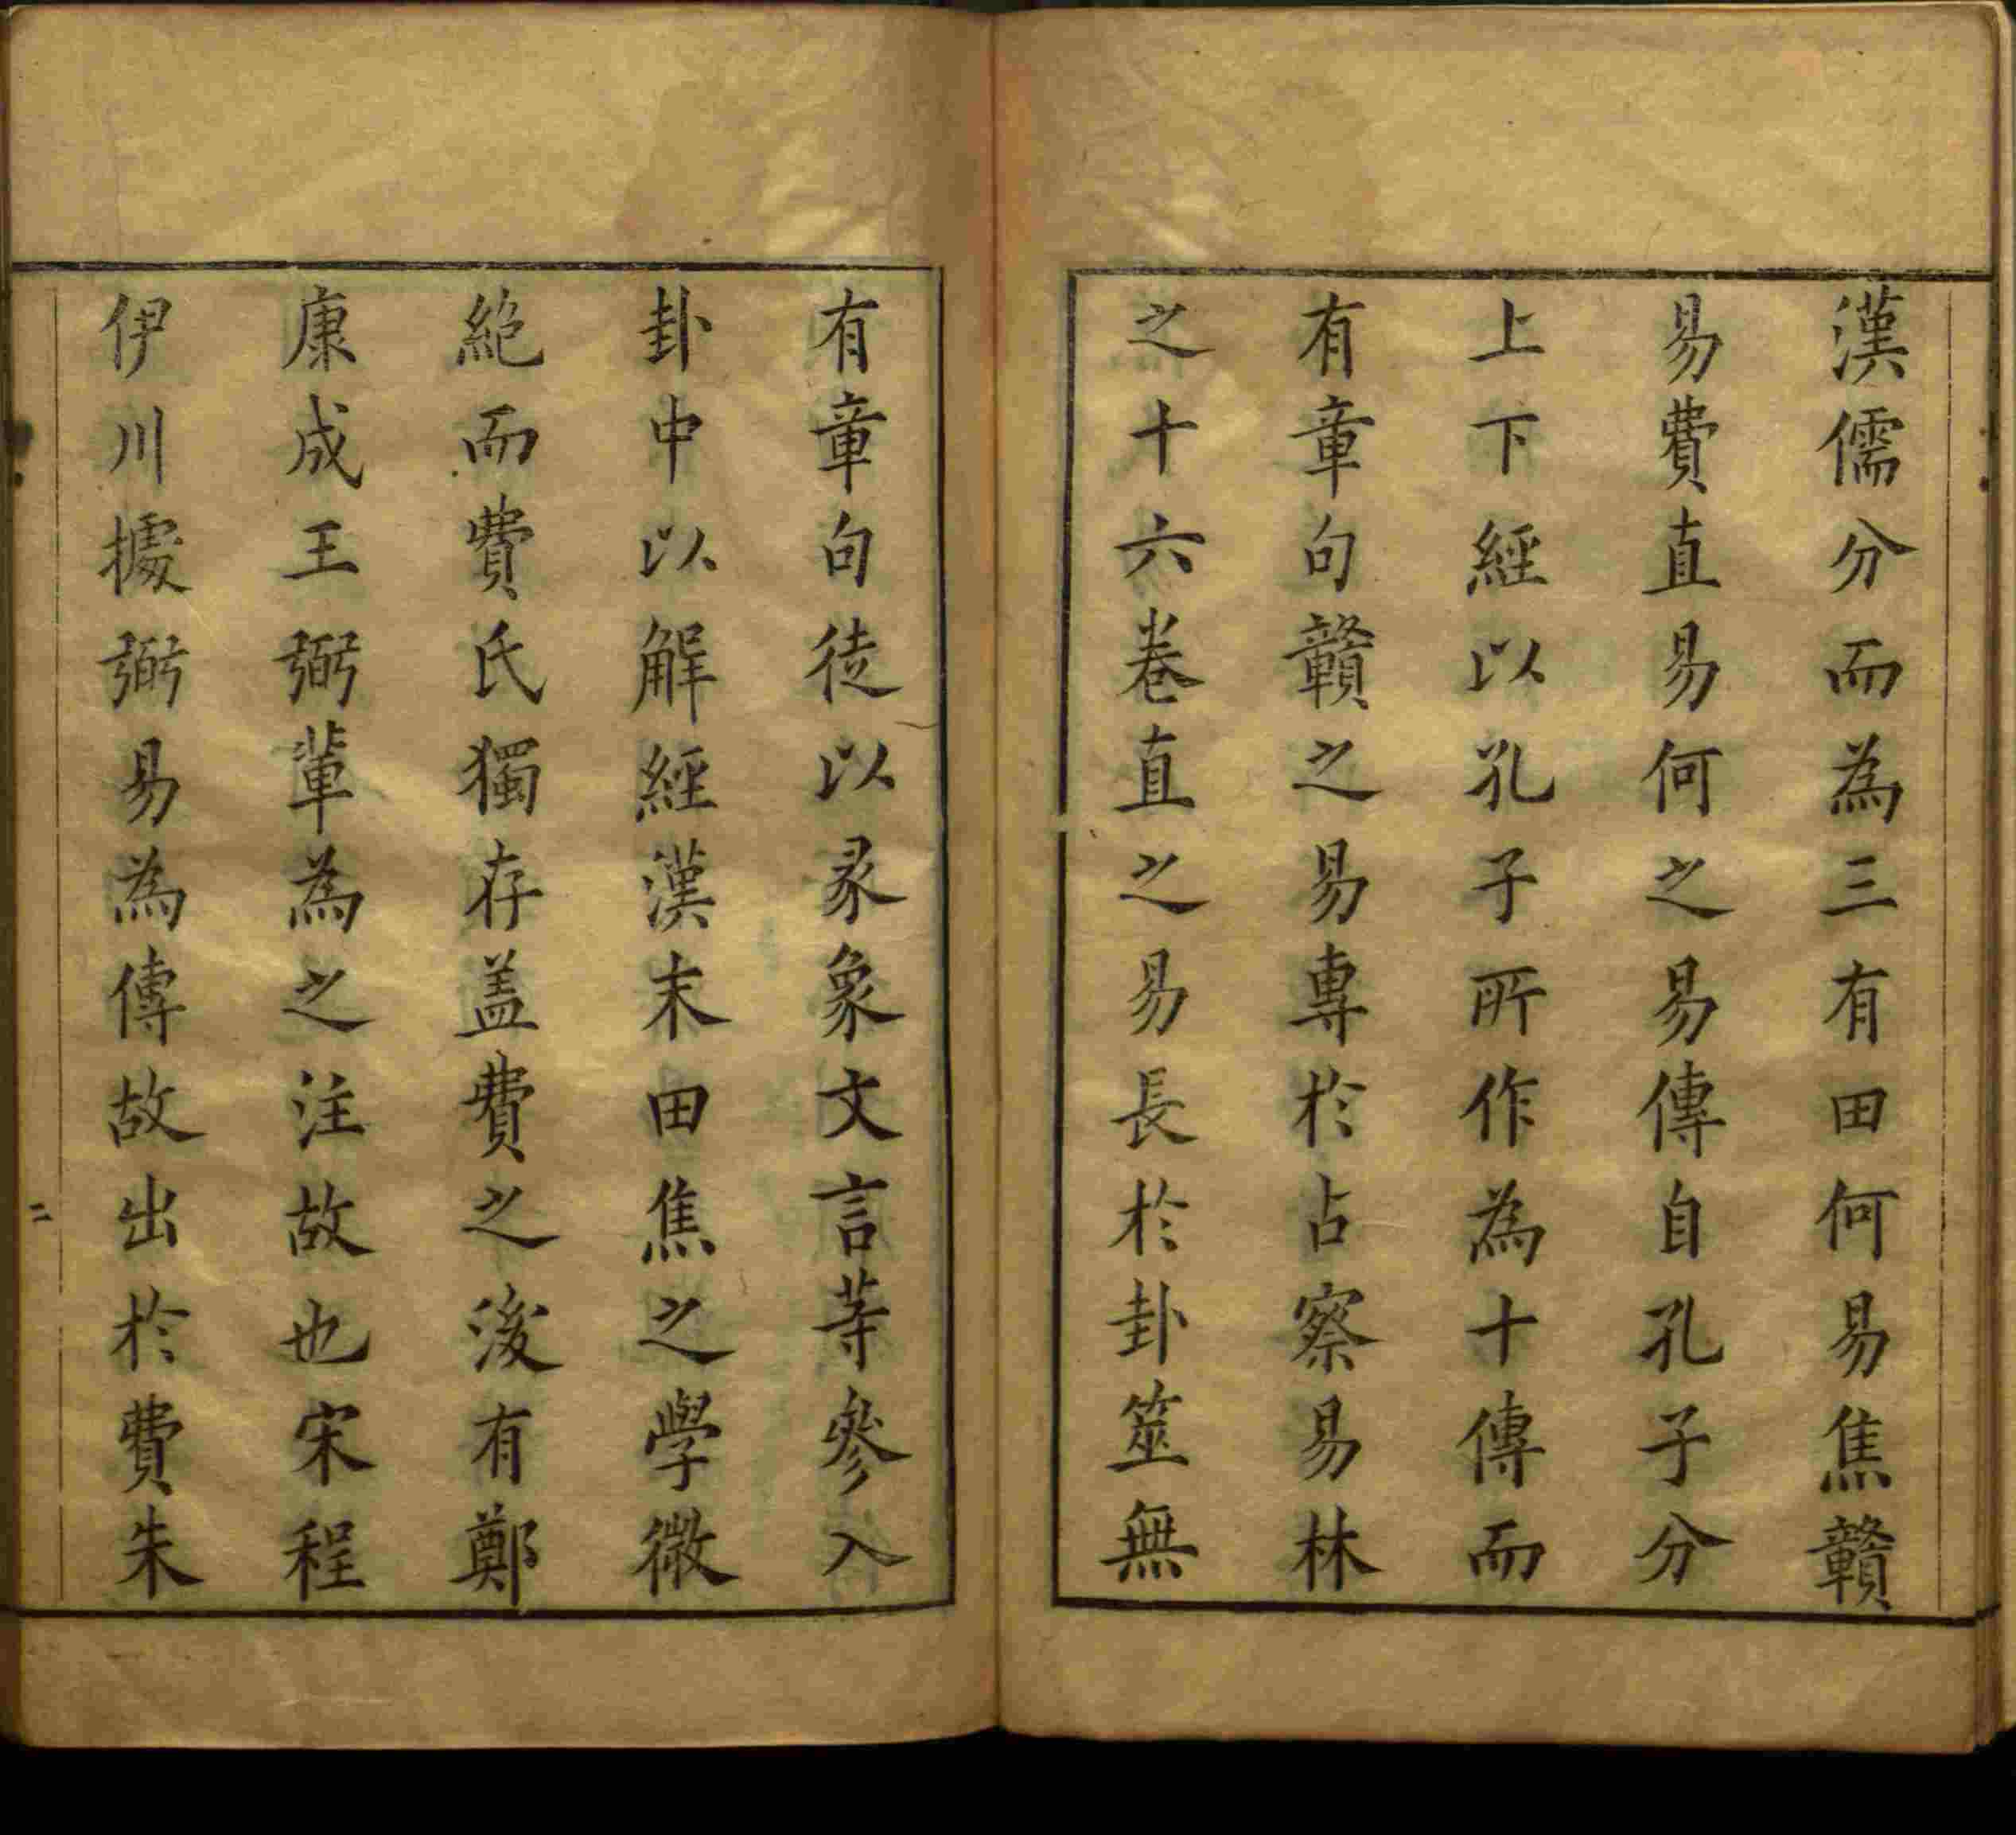 漢儒分而為三有田何易焦贛
易費直易何之易傳自孔子分
上下經以孔子所作為十傳而
有章句贛之易專於占察易林
之十六卷直之易長於卦筮無
有章句徒以彖象文言等參入
卦中以解經漢末田焦之學微
絶而費氏獨存盖費之後有鄭
康成王弼軰為之注故也宋程
伊川據弼易為傳故出於費朱
二